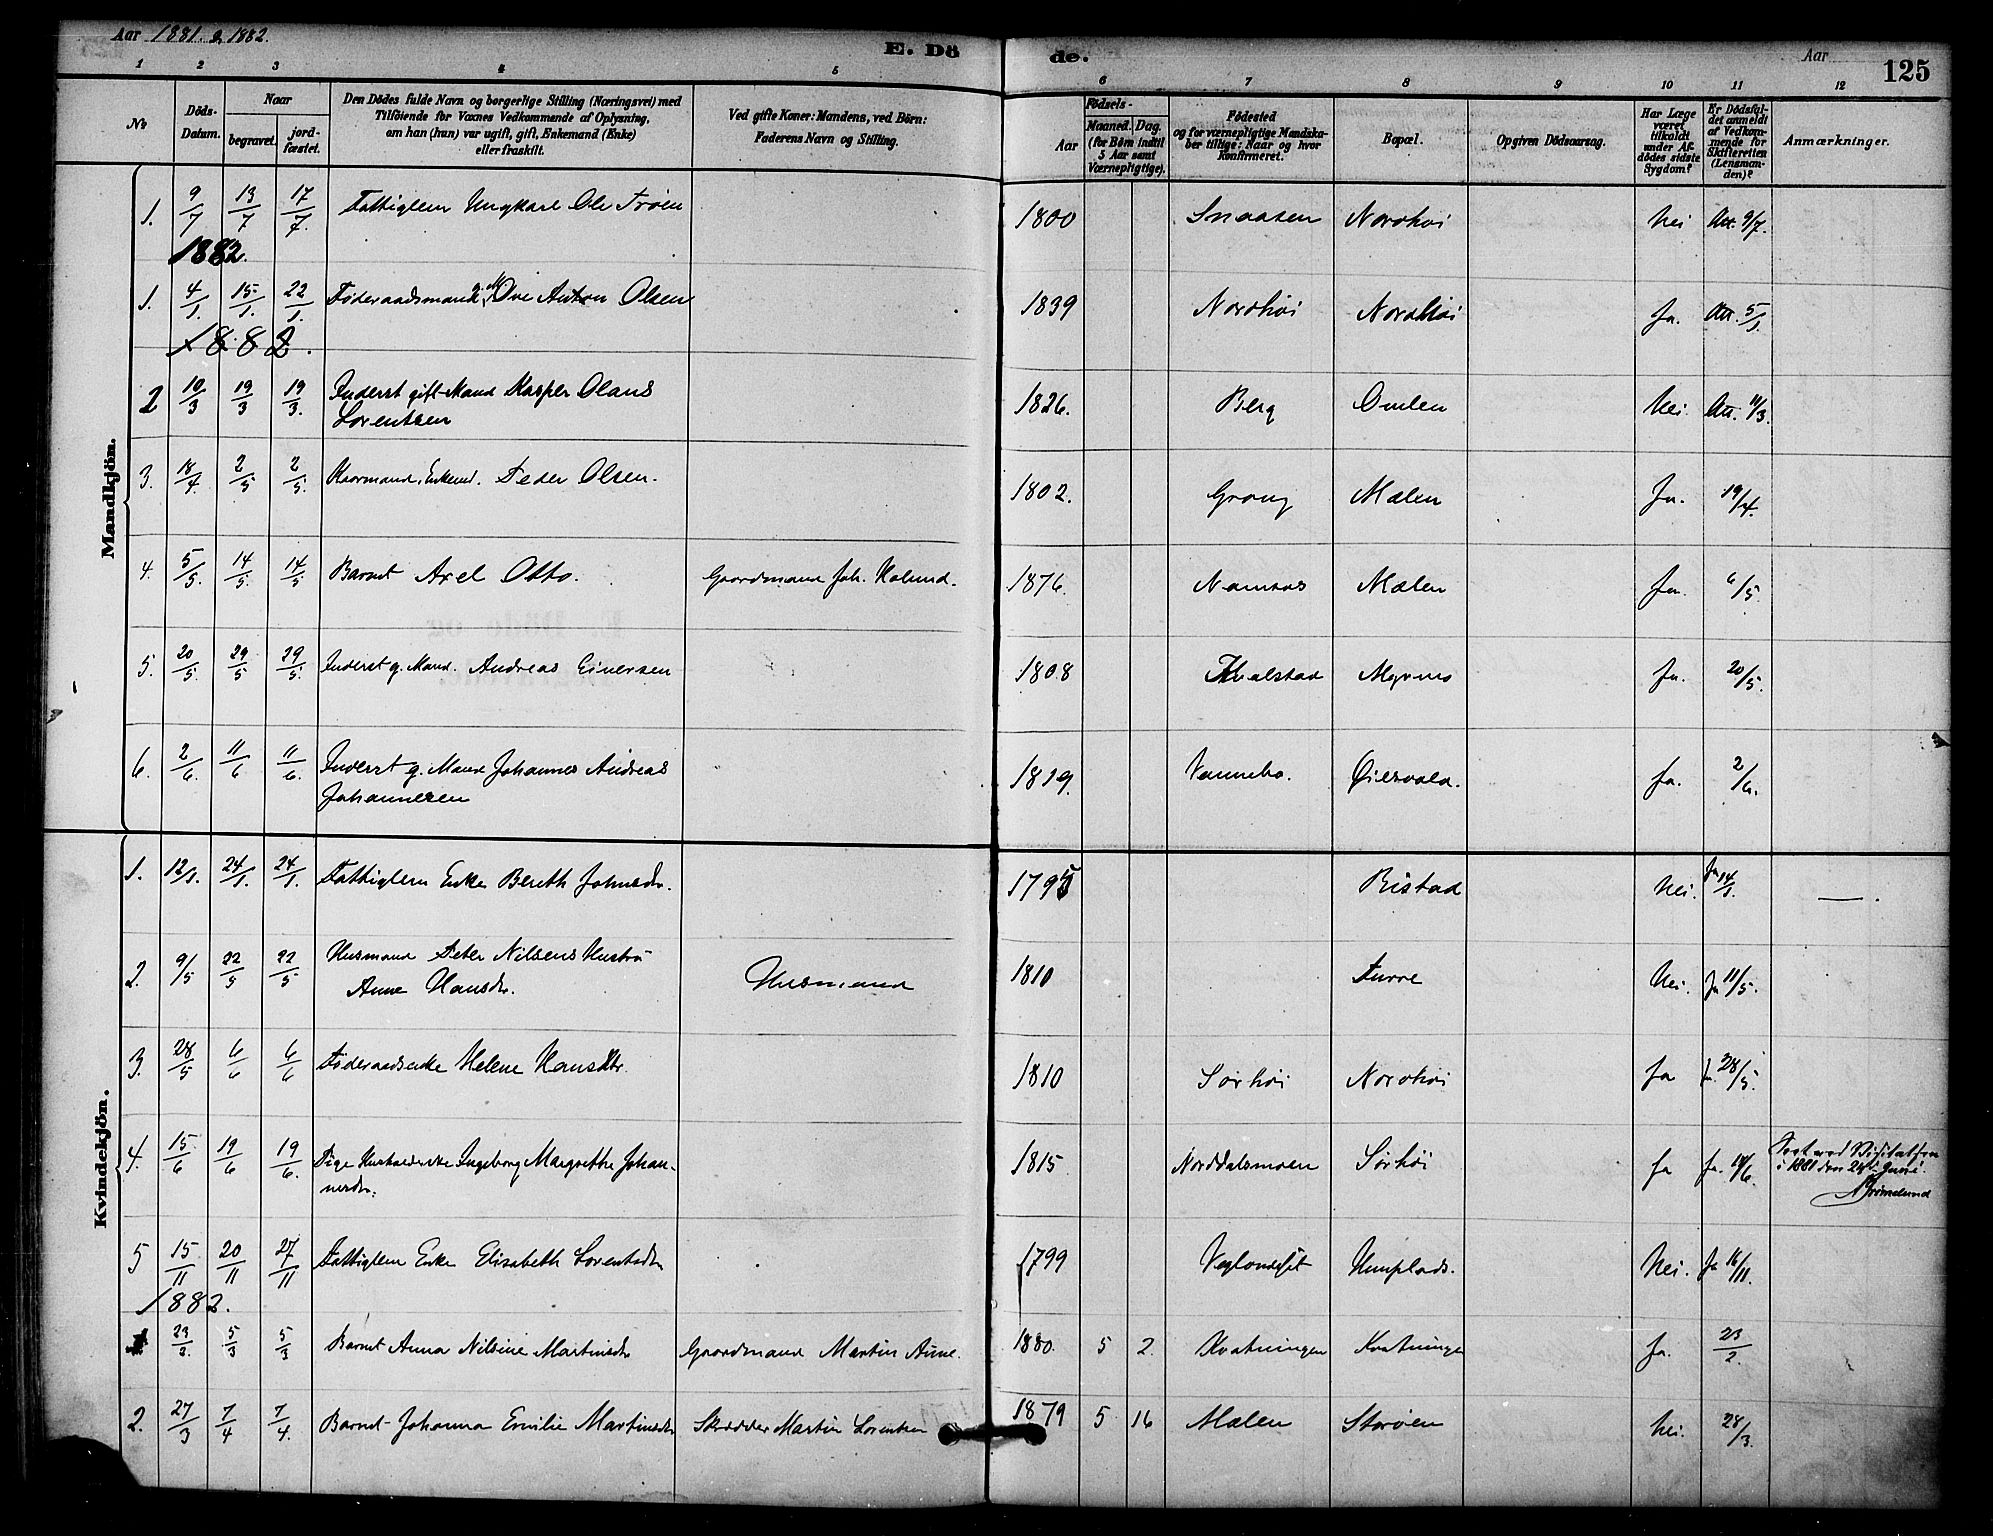 Aar 1881 & 1882.
E. Dö
de.
Aar
125
1 2 3 4 5 6 7 8 9 10 11 12
No
Döds-Datum.
Naar
begravet.
jord-fæstet.
Den Dödes fulde Navn og borgerlige Stilling (Næringsvei) med
Tilföiende for Voxnes Vedkommende af Oplysning,
om han (hun) var ugift, gift, Enkemand (Enke)
eller fraskilt.
Ved gifte Koner: Mandens, ved Börn:
Faderens Navn og Stilling.
Födsels-
Aar
Maaned. Dag.
(for Börn indtil
5 Aar samt
Værnepligtige).
Födested
og for værnepligtige Mandska-
ber tillige: Naar og hvor
konfirmeret.
Bopæl.
Opgiven Dödsaarsag.
Har Læge
været
tilkaldt
under Af-
dödes sidste
Sygdom?
Er Dödsfal-
det anmeldt
af Vedkom-
mende for
Skifteretten
(Lensman-
den)?
Anmærkninger.
Mandkjön.
1. 9/7 13/7 17/7. Fattiglem Ungkarl Ole Trøen 1800 Snaasen Nordhøi Nei Att. 9/7.
1882.
1. 4/1. 15/1. 22/1. Føderaadsmand g. M. Ove Anton Olsen 1839 Nordhøi Nordhøi Ja. Att. 5/1.
1882.
2 10/3 19/3 19/3. Inderst gift Mand Kasper Olaus
Lorentsen 1826. Berg Nei. Att. 11/3.
3. 18/4 2/5 2/5. Kaarmand, Enkemd. Peder Olsen. 1802. Grong Mælen Ja. 19/4.
4. 5/5. 14/5. 14/5 Barnet Axel Otto. Gaardmand Joh. 1876. Namsos Mælen Ja. 6/5.
5. 20/5. 29/5 29/5. Inderst g. Mand. Andreas Einersen 1808 Ja. 20/5.
6. 2/6. 11/6 11/6. Inderst g. Mand Johannes Andreas
Johannesen 1819. Vannebo. Ja. 2/6.
Kvindekjön.
1. 12/1. 24/1. 24/1. Fattiglem Enke Bereth Johnsdr. 1795 Ristad Nei. Ja 14/1. —.
2. 9/5 22/5 22/5 Husmand Peter Nilsens Hustru
Anne Hansdr. Husmand 1810 Furre Nei. Ja 11/5.
3. 28/5 6/6 6/6 Føderaadsenke Helene Hansdtr. 1810 Sørhøi Nordhøi Ja Ja. 28/5.
4. 15/6 19/6 19/6. Pige Ingeborg Margrethe Johan-
nesdr. 1815 Norddalsmoen Sørhøi Ja Ja.
ved Visitatsen
i 1881 den 24de Juni
5 15/11 20/11 27/11 Fattiglem Enke Elisabeth Lorentsdr. 1799 Nei. Ja 16/11.
1882.
1 23/2. 5/3 5/3 Barnet Anna Nilsine Martinsdr Gaardmand Martin Aune. 1880. 5 2. Kvatningen Kvatningen Ja. 23/2.
2. 27/3 7/4 7/4. Barnet Johanna Emilie Martinsdr Skrædder Martin Lorentsen 1879 5 16 Mælen Storøen Nei. 28/3.